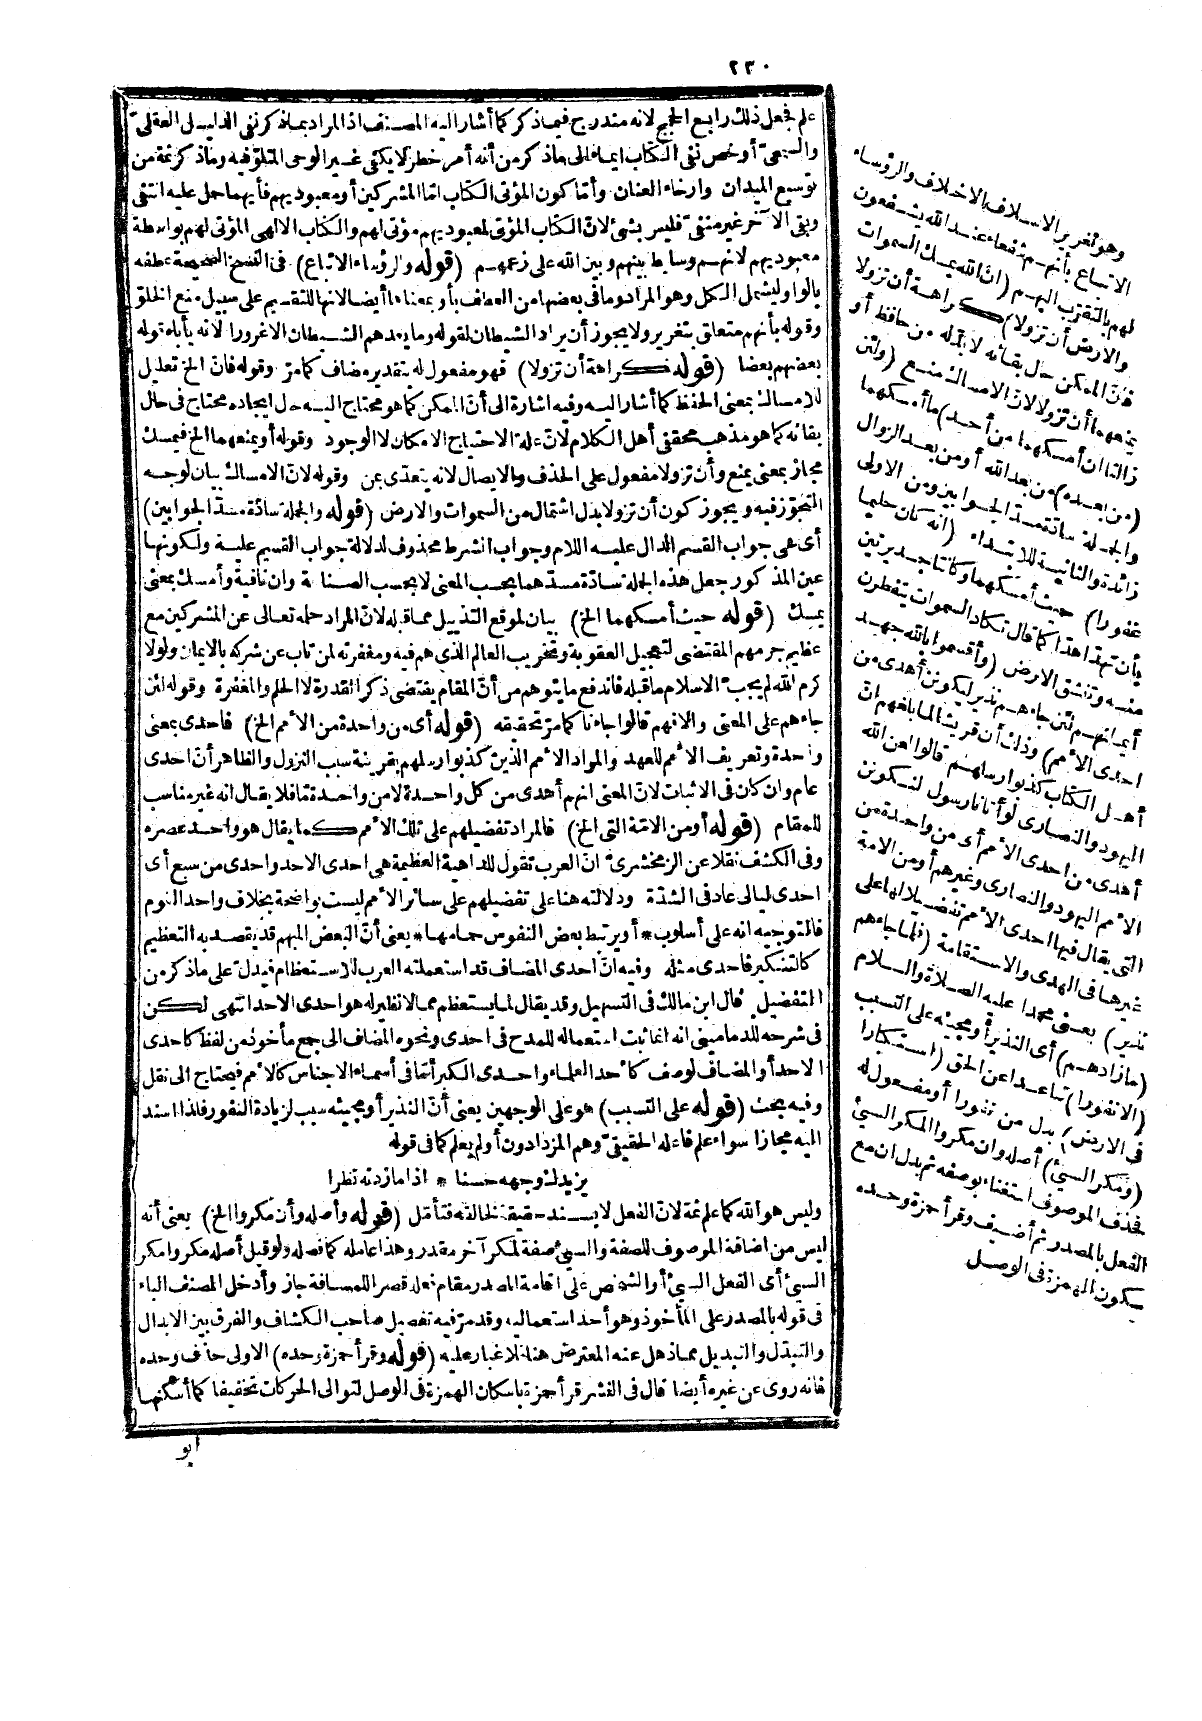 ٢٣٠
علم فجعل ذلك رابع الحجج لانه مندرج فيما ذكر كما أشار اليه المصنف اذ المراد بما ذكر نفى الدليل العقلىّ
والسمعىّ أو خص نفى الكتاب ايماء الى ما ذكر من أنه أمر خطر لا يكفى غير الوحى المتلوّ فيه وما ذكر ثمة من
توسيع الميدان وارخاء العنان وأمّا كون المؤتى الكتاب امّا المشركين أو معبوديهم فأيهما حمل عليه انتفى
وبقى الآخر غير منفىّ فليس بشئ لانّ الكتاب المؤتى لمعبوديهم مؤتى لهم والكتاب الالهى المؤتى لهم بواسطة
معبوديهم لانهم وسايط بينهم وبين الله على زعمهم (قوله والرؤساء الاتباع) فى النسخ الصحيحة عطفه
بالواو ليشمل الكل وهو المراد وما فى بعضها من العطف بأو بمعناها أيضا لانها للتقسيم على سبيل منع الخلوّ
وقوله بأنهم متعلق بتغرير ولا يجوز أن يراد الشيطان لقوله وما يعدهم الشيطان الاغرورا لانه يأباه قوله
بعضهم بعضا (قوله كراهة أن تزولا) فهو مفعول له بتقدير مضاف كما مرّ وقوله فانّ الخ تعليل
للامساك بمعنى الحفظ كما أشار اليه وفيه اشارة الى أنّ الممكن كما هو محتاج اليه حال ايجاده محتاج فى حال
بقائه كما هو مذهب محققى أهل الكلام لانّ علة الاحتياج الامكان لا الوجود وقوله أو يمنعهما الخ فيمسك
مجاز بمعنى يمنع وأن تزولا مفعول على الحذف والايصال لانه يتعدى بمن وقوله لانّ الامساك بيان لوجه
التجوّز فيه ويجوز كون أن تزولا بدل اشتمال من السموات والارض (قوله والجملة سادّة مسدّ الجوابين)
أى هى جواب القسم الدال عليه اللام وجواب الشرط محذوف لدلالة جواب القسم عليه ولكونها
عين المذكور جعل هذه الجملة سادّة مسدّهما بحسب المعنى لا بحسب الصناعة وان نافية وأمسك بمعنى
يمسك (قوله حيث أمسكهما الخ) بيان لموقع التذييل مما قبله لانّ المراد حلمه تعالى عن المشركين مع
عظيم جرمهم المقتضى لتعجيل العقوبة وتخريب العالم الذى هم فيه ومغفرته لمن تاب عن شركه بالايمان ولولا
كرم الله لم يجبّ الاسلام ما قبله فاندفع ما يتوهم من أنّ المقام يقتضى ذكر القدرة لا الحلم والمغفرة وقوله لئن
جاءهم على المعنى والافهم قالوا جاءنا كما مرّ تحقيقه (قوله أى من واحدة من الأمم الخ) فاحدى بمعنى
واحدة وتعريف الأمم للعهد والمراد الأمم الذين كذبوا رسلهم بقرينة سبب النزول والظاهر أن احدى
عام وان كان فى الاثبات لانّ المعنى انهم أهدى من كل واحدة لا من واحدة مّا فلا يقال انه غير مناسب
للمقام (قوله أو من الامّة التى الخ) فالمراد تفضيلهم على تلك الأمم كما يقال هو واحد عصره
وفى الكشف نقلا عن الزمخشرىّ انّ العرب تقول للداهية العظيمة هى احدى الاحد واحدى من سبع أى
احدى ليالى عاد فى الشدّة ودلالته هنا على تفضيلهم على سائر الأمم ليست بواضحة بخلاف واحد القوم
فالتوجيه انه على أسلوب * أو يرتبط بعض النفوس حمامها * يعنى أنّ البعض المبهم قد يقصد به التعظيم
كالتنكير فاحدى مثله وفيه انّ احدى المضاف قد استعملته العرب للاستعظام فيدلّ على ما ذكر من
التفضيل قال ابن مالك فى التسهيل وقد يقال لما يستعظم مما لا نظير له هو احدى الاحد انتهى لكن
فى شرحه للدمامينى انه انما ثبت استعماله للمدح فى احدى ونحوه المضاف الى جمع مأخوذ من لفظ كاحدى
الاحد أو المضاف لوصف كأحد العلماء واحدى الكبر أمّا فى أسماء الاجناس كالأمم فيحتاج الى نقل
وفيه بحث (قوله على التسبب) هو على الوجهين يعنى أنّ النذير أو مجيئه سبب لزيادة النفور فلذا اسند
اليه مجازا سواء علم فاعله الحقيقىّ وهم المزدادون أو لم يعلم كما فى قوله
يزيدك وجهه حسنا * اذا ما زدته نظرا
وليس هو الله كما علم ثمة لانّ الفعل لا يسند حقيقة لخالقه فتأمّل (قوله وأصله وأن مكروا الخ) يعنى أنه
ليس من اضافة الموصوف للصفة والسيئ صفة لمكر آخر مقدر وهذا عامله كما فصله ولو قيل أصله مكروا مكر
السيئ أى الفعل السيئ أو الشخص على اقامة المصدر مقام فعله قصر اللمسافة جاز وأدخل المصنف الباء
فى قوله بالمصدر على المأخوذ وهو أحد استعماليه وقد مرّ فيه تفصيل صاحب الكشاف والفرق بين الابدال
والتبدّل والتبديل مما ذهل عنه المعترض هنا فلا غبار عليه (قوله وقرأ حمزة وحده) الاولى حذف وحده
فانه روى عن غيره أيضا قال فى النشر قرأ حمزة باسكان الهمزة فى الوصل لتوالى الحركات تخفيفا كما أسكنها
ابو
وهو تغرير الاسلاف الاخلاف والرؤساء
الاتباع بأنهم شفعاء عند الله يشفعون
لهم بالتقرّب اليهم (انّ الله يمسك السموات
والارض أن تزولا) كراهة أن تزولا
فانّ الممكن حال بقائه لا بدّ له من حافظ أو
يمنعهما أن تزولا لانّ الامساك منع (ولئن
زالتا ان أمسكهما من أحد) ما أمسكهما
(من بعده) من بعد الله أو من بعد الزوال
والجملة سادّة مسدّ الجوابين ومن الاولى
زائدة والثانية للابتداء (انه كان حليما
غفورا) حيث أمسكهما وكانتا جديرتين
بأن تهدّا هدّا كما قال تكاد السموات يتفطرن
منه وتنشق الارض (وأقسموا بالله جهد
أيمانهم لئن جاءهم نذير ليكونن أهدى من
احدى الأمم) وذلك أن قريشا لما بلغهم أنّ
أهل الكتاب كذبوا رسلهم قالوا لعن الله
اليهود والنصارى لو أتانا رسول لنكونن
أهدى من احدى الأمم أى من واحدة من
الأمم اليهود والنصارى وغيرهم أو من الامة
التى يقال فيها احدى الأمم تفضيلا لها على
غيرها فى الهدى والاستقامة (فلما جاءهم
نذير) يعنى محمدا عليه الصلاة والسلام
(ما زادهم) أى النذير أو مجيئه على التسبب
(الانفورا) تباعدا عن الحق (استكبارا
فى الارض) بدل من نفورا أو مفعول له
(ومكر السيئ) أصله وان مكروا المكر السيئ
فحذف الموصوف استغناء بوصفه ثم بدل ان مع
الفعل بالمصدر ثم أضيف وقرأ حمزة وحده
بسكون الهمزة فى الوصل